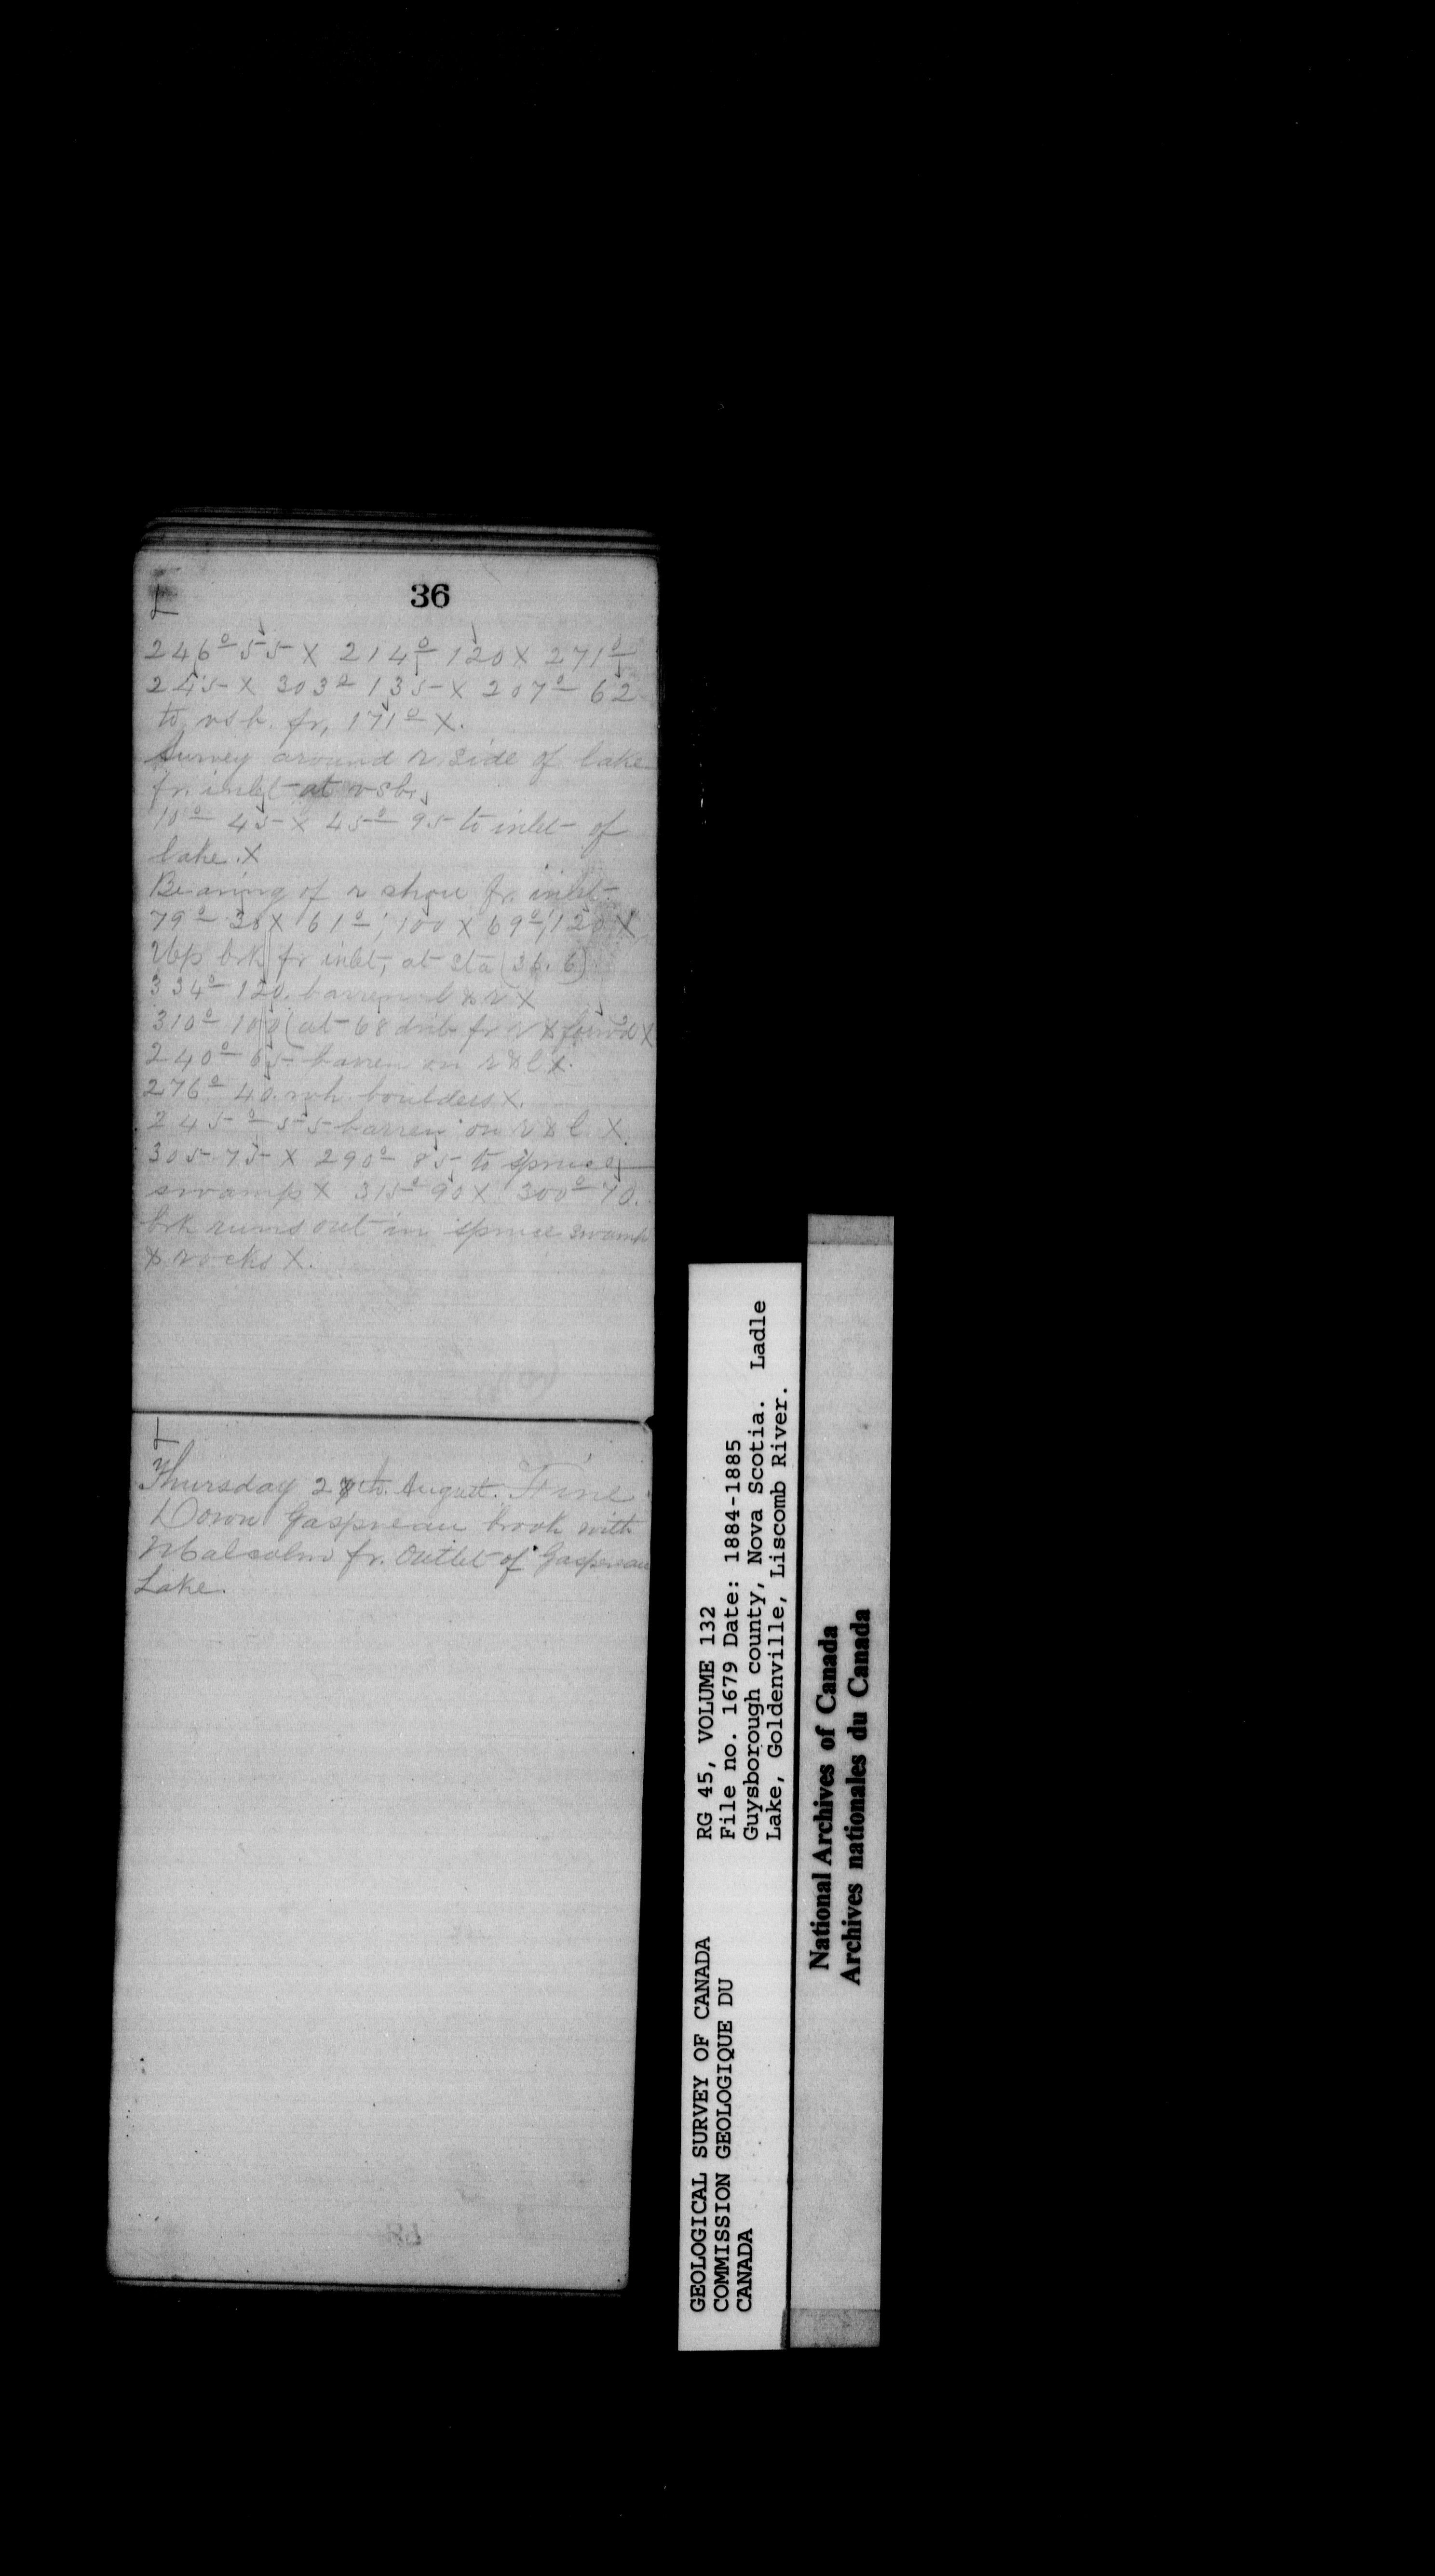 36
246° 55 X 214° 120 X 271°
245 X 303° 135 X 207° 62
to vsb. fr, 171° X.
Survey around r side of lake
fr. inlet at vsb.
10° 45 X 45° 95 to inlet of
lake. X
Bearing of r shore fr. inlet
79° 30 X 61°, 100 X 69°, 120 X
Up brk fr inlet, at sta (36.6)
334° 120. barren l & r X
310° 100 (at 68 dvb fr r & forwd X
240° 65 barren on r & l X.
276° 40. wh. boulders X.
245° 55 barren on r & l. X.
305 75 X 290° 85 to spruce
swamp X 315° 90 X 300° 70.
brk runs out in spruce swamp
& rocks X.
Thursday 27th August. Fine
Down Gaspereau brook with
Malcolm fr. outlet of Gaspereau
Lake.
GEOLOGICAL SURVEY OF CANADA
COMMISSION GEOLOGIQUE DU
CANADA
RG 45, VOLUME 132
File no. 1679 Date: 1884-1885
Guysborough county, Nova Scotia. Ladle
Lake, Goldenville, Liscomb River.
National Archives of Canada
Archives nationales du Canada